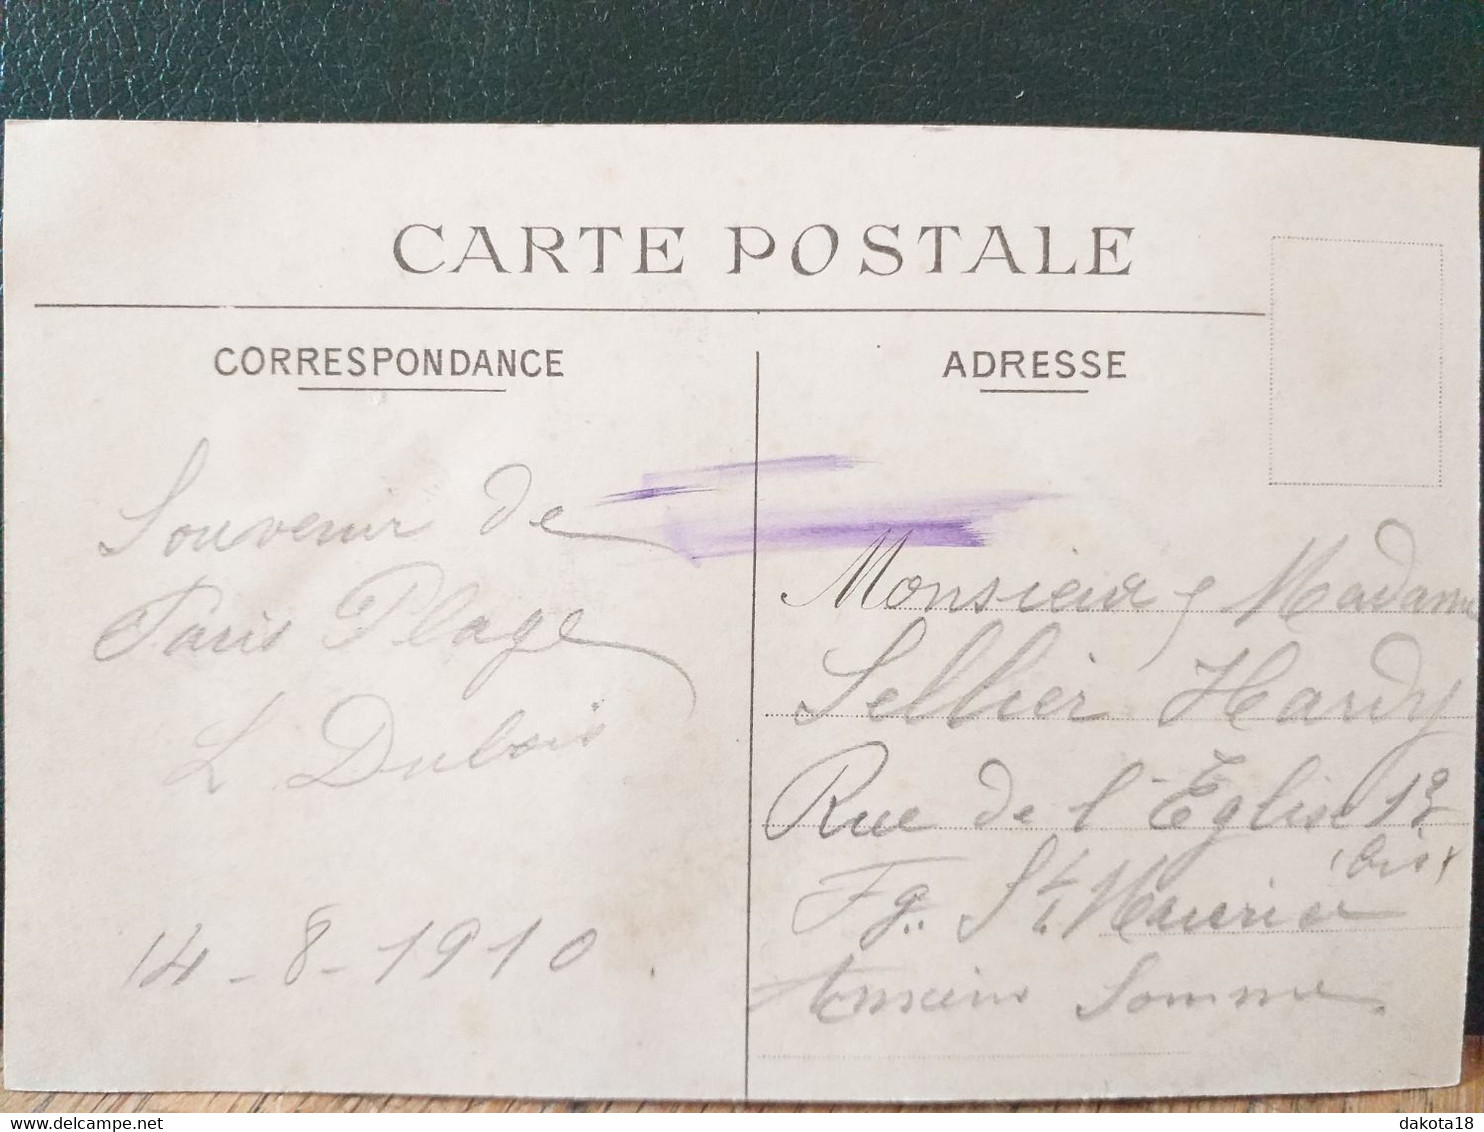 CARTE POSTALE
CORRESPONDANCE
Souvenir de
Paris Plage
L Dubois
14-8-1910
ADRESSE
Monsieur & Madame
Sellier Hardy
Rue de l'Église 13
(bis)
Fg. St. Maurice
Amiens Somme
dakota18